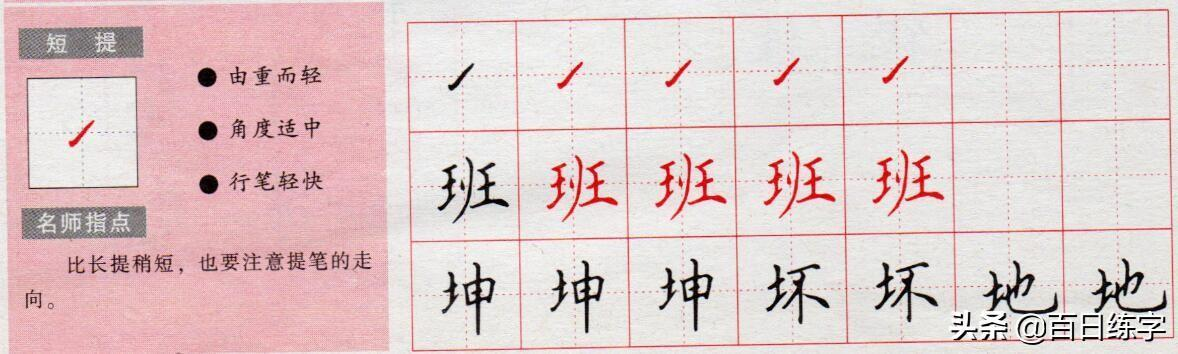 短 提
由重而轻
角度适中
行笔轻快
名师指点
比长提稍短，也要注意提笔的走
向。
班 班 班 班 班
坤 坤 坤 坏 坏 地 地
头条 @百日练字